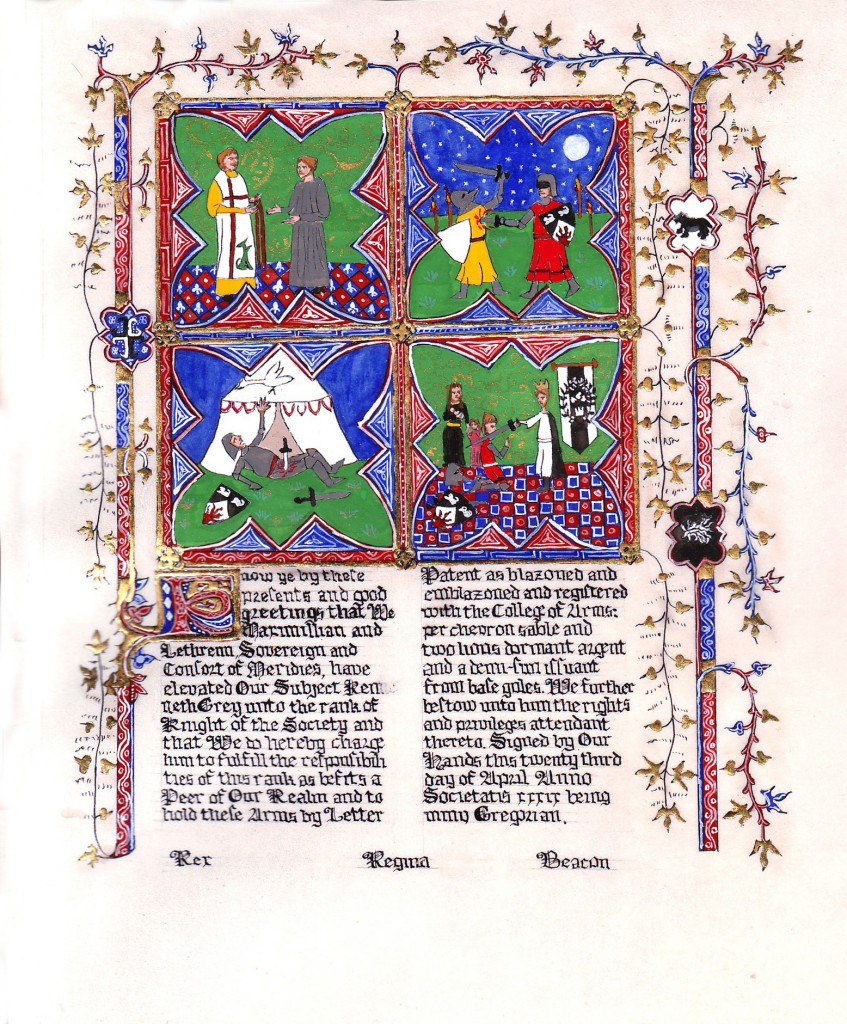 Know ye by these
presents and good
greetings that We
Maximilian and
Lethrenn, Sovereign and
Consort of Meridies, have
elevated Our Subject Ken
neth Grey unto the rank of
Knight of the Society and
that We do hereby charge
him to fulfill the responsibili
ties of this rank as befits a
Peer of Our Realm and to
hold these Arms by Letter
Patent as blazoned and
emblazoned and registered
with the College of Arms:
per chevron sable and
two lions dormant argent
and a demi-sun issuant
from base gules. We further
bestow unto him the rights
and privileges attendant
thereto. Signed by Our
Hands this twenty third
day of April Anno
Societatis xxxix being
mmv Gregorian.
Rex Regina Beacon